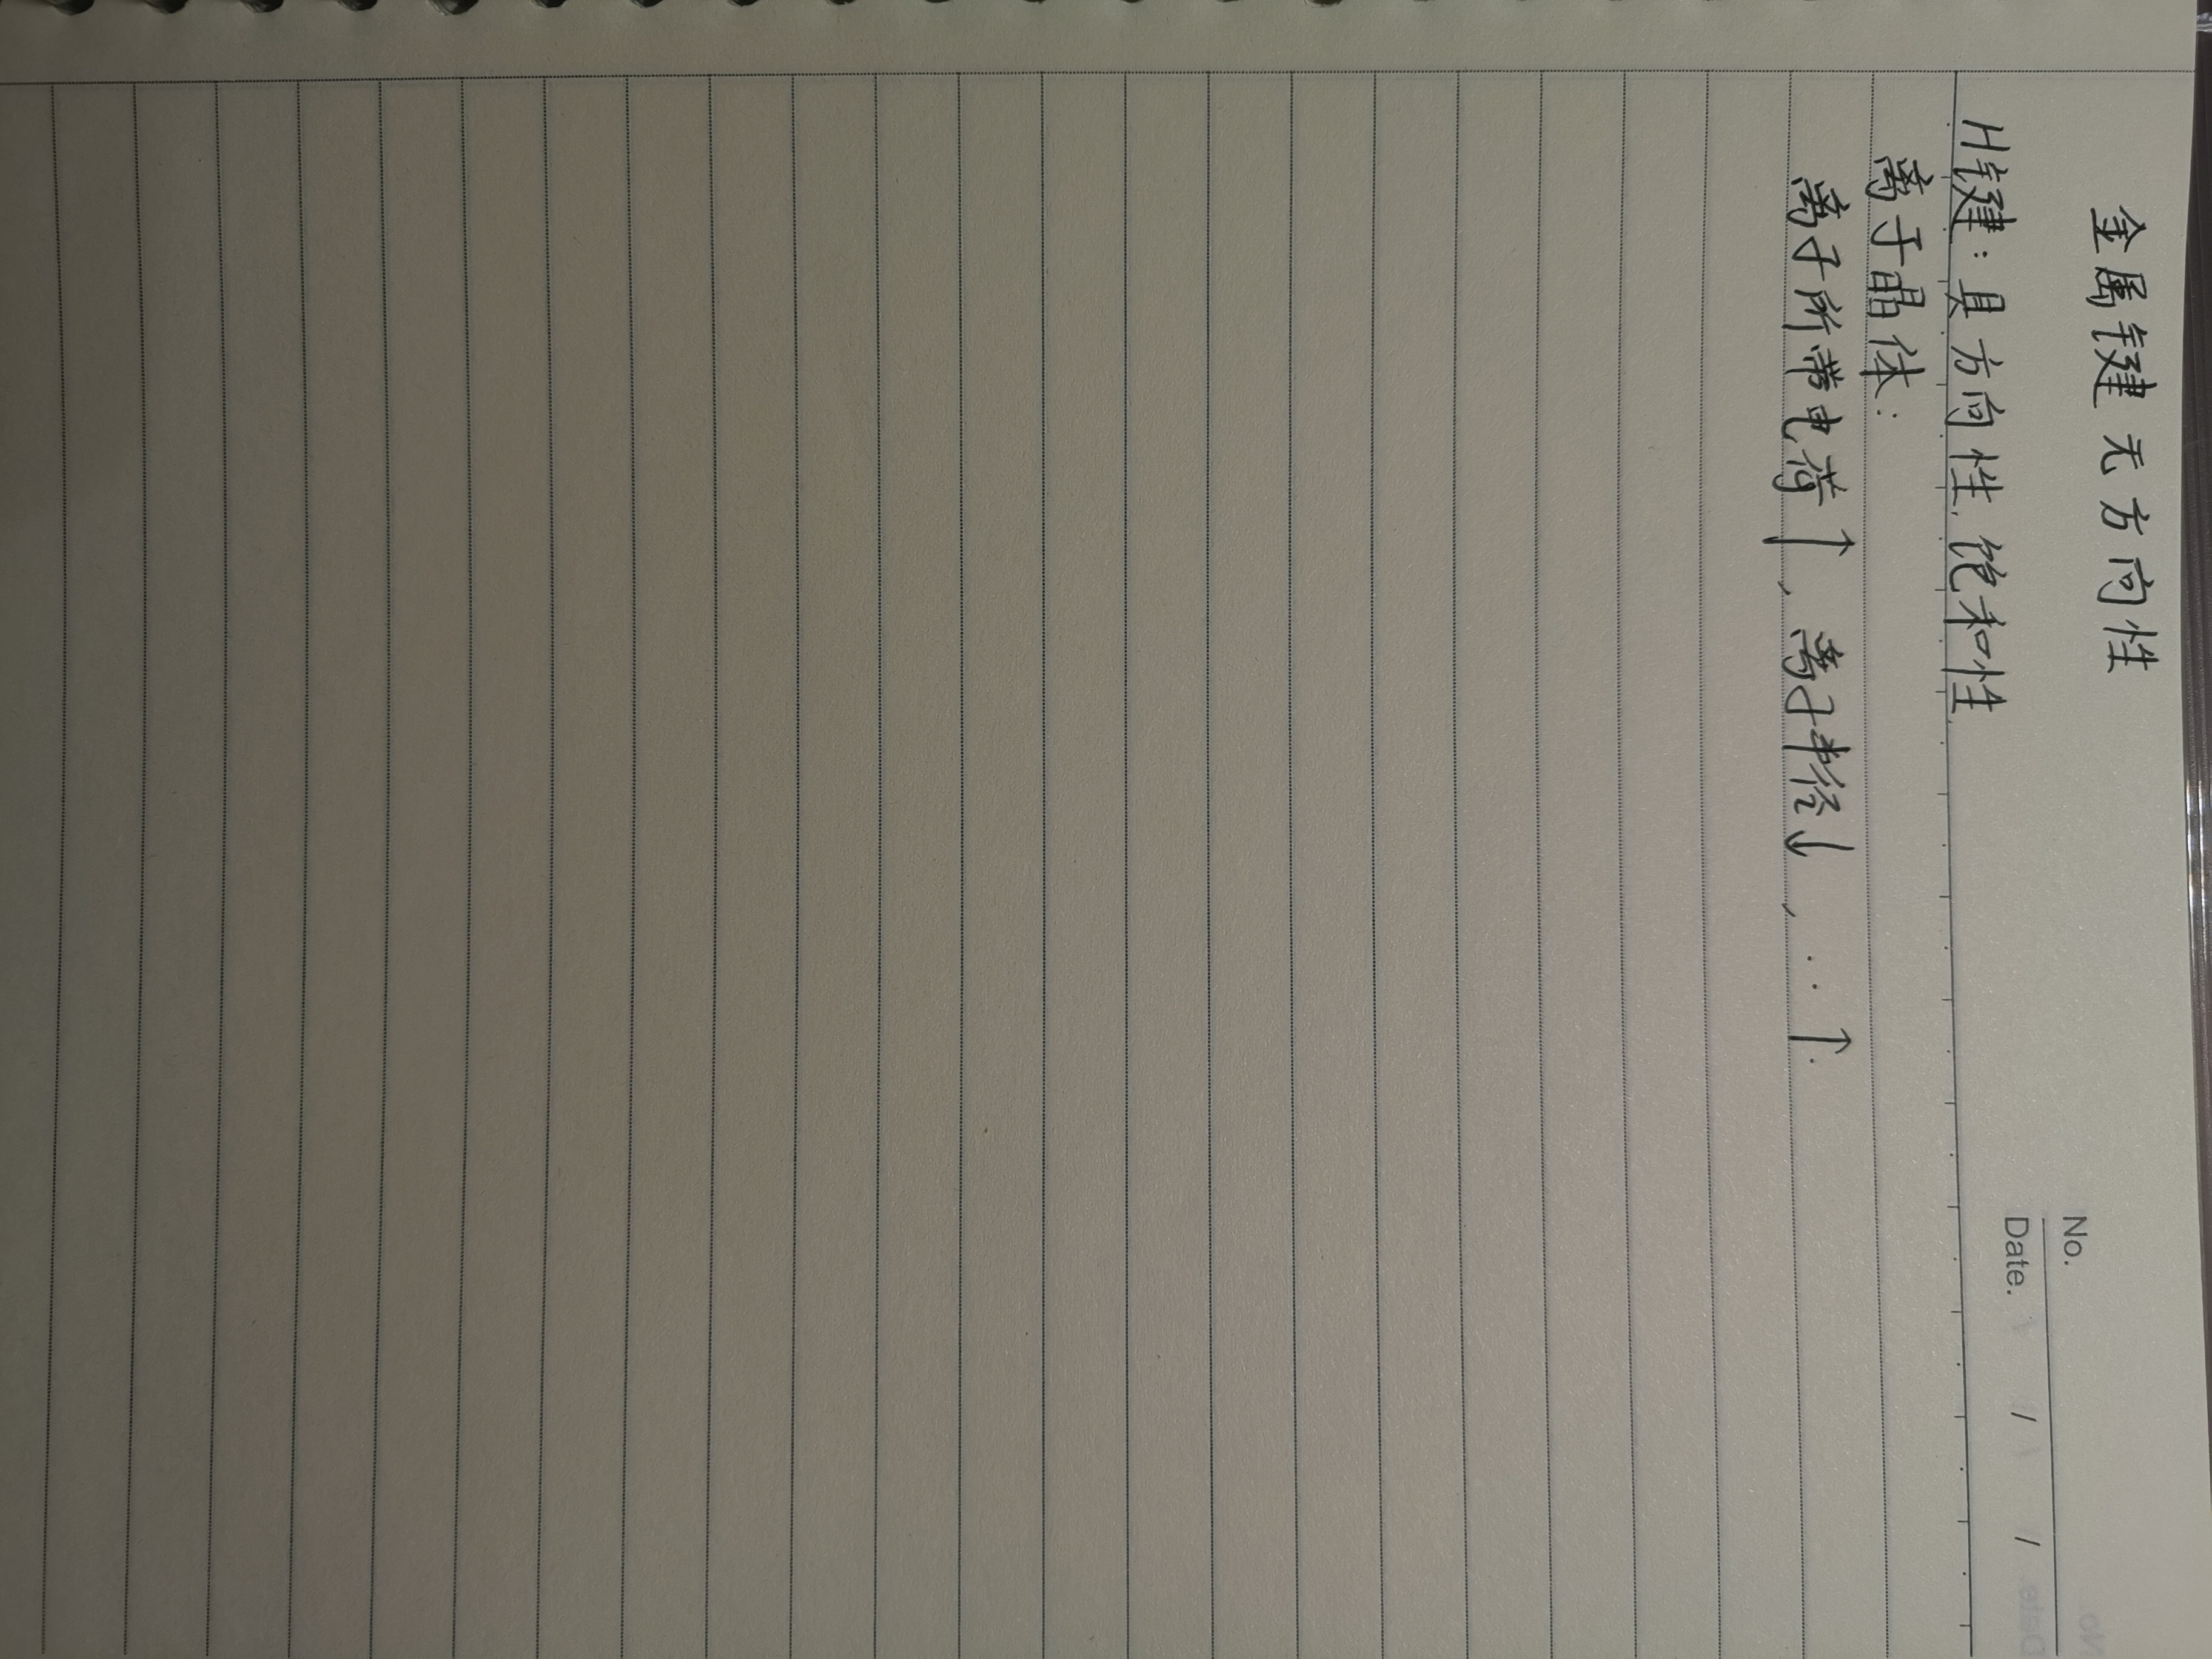 金属键无方向性
No.
Date. / /
H键：具方向性.饱和性.
离子晶体：
离子所带电荷↑，离子半径↓，‥↑.